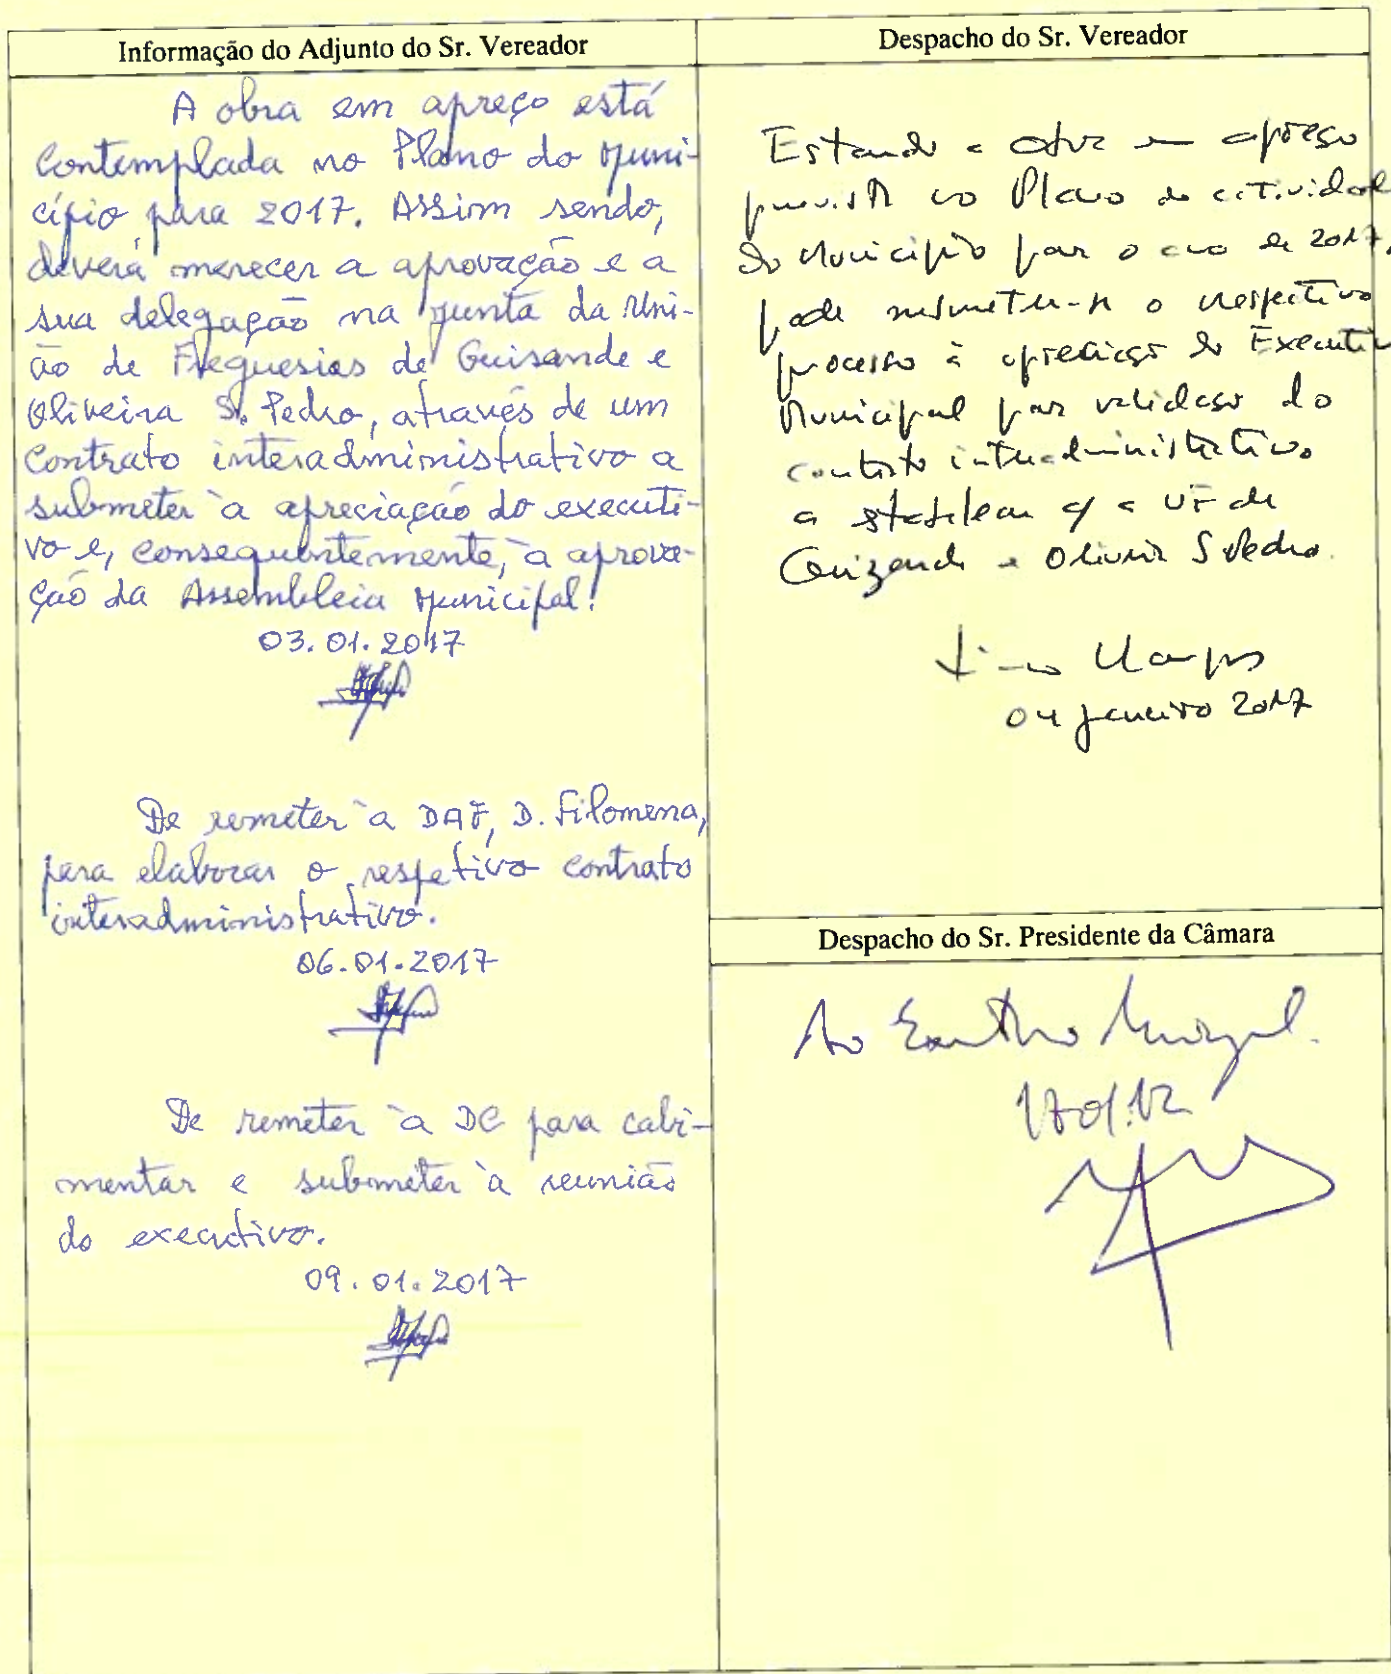 Informação do Adjunto do Sr. Vereador
A obra em apreço está
contemplada no Plano do Muni-
cípio para 2017. Assim sendo,
deverá merecer a aprovação e a
sua delegação na Junta da Uni-
ão de Freguesias de Guisande e
Oliveira S. Pedro, através de um
contrato interadministrativo a
submeter à apreciação do executi-
vo e, consequentemente, à aprova-
ção da Assembleia Municipal.
03.01.2017
De remeter à DAF, D. Filomena,
para elaborar o respetivo contrato
interadministrativo.
06.01.2017
De remeter à DC para cabi-
mentar e submeter à reunião
do executivo.
09.01.2017
Despacho do Sr. Vereador
Estando a obra em apreço
prevista no Plano de actividade
do Município para o ano de 2017,
pode submeter-se o respectivo
processo à apreciação do Executivo
Municipal para validação do
contrato interadministrativo
a estabelecer c/ a UF de
Guizande e Oliveira S Pedro.
04 janeiro 2017
Despacho do Sr. Presidente da Câmara
Ao Executivo Municipal.
17.01.12